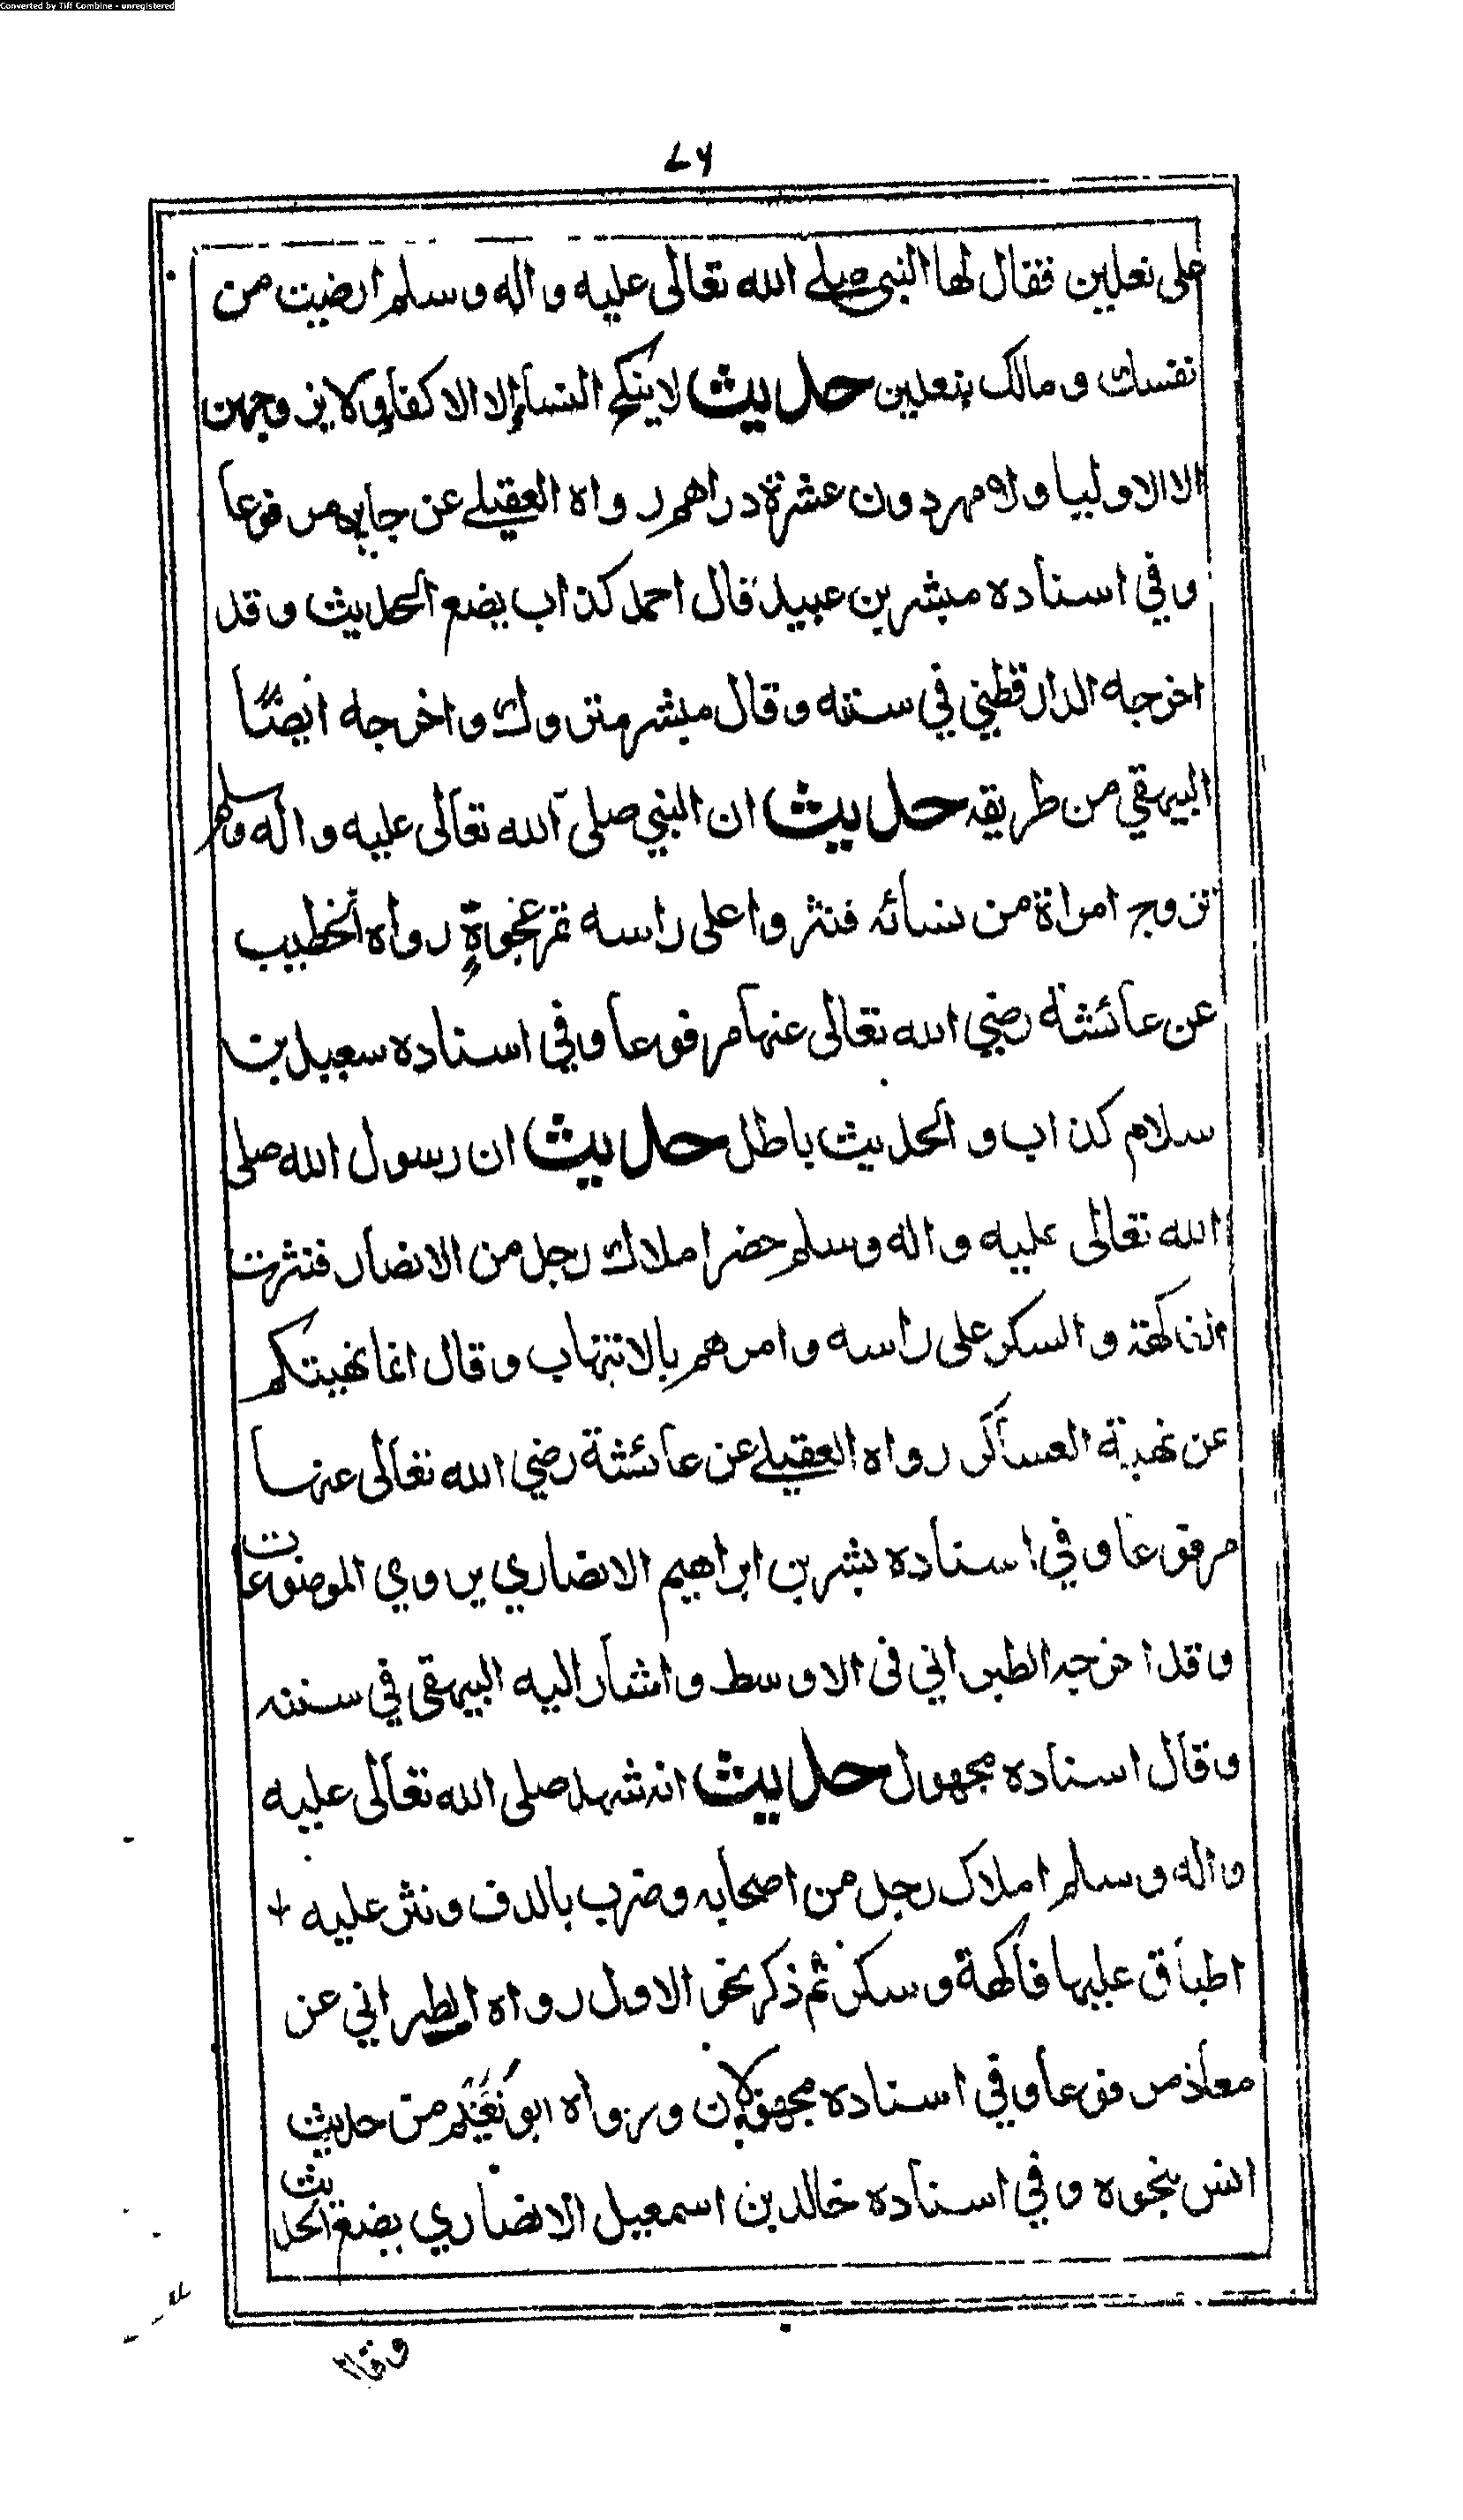 Converted by Tiff Combine - unregistered
٤٧
على نعلين فقال لها النبى صلے الله تعالى عليه واله وسلم ارضيت من
نفسك ومالك بنعلين حديث لا ينكح النساء إلا الاكفاء ولا يزوجهن
الا الاوليا ولا مهر دون عشرة دراهم رواه العقيلے عن جابر مرفوعا
وفي اسناده مبشر بن عبيد قال احمد كذاب يضع الحديث وقد
اخرجه الدارقطني في سننه وقال مبشر متروك واخرجه ايضًا
البيهقي من طريقه حديث ان النبي صلى الله تعالى عليه واله وسلم
تزوج امراة من نسائه فنثروا على راسه تمر عجوةٍ رواه الخطيب
عن عائشة رضي الله تعالى عنها مرفوعا وفي اسناده سعيد بن
سلام كذاب والحديث باطل حديث ان رسول الله صلى
الله تعالى عليه واله وسلم حضر املاك رجل من الانصار فنثرت
الفاكهة والسكر على راسه وامرهم بالانتهاب وقال انما نهيتكم
عن نهبة العساكر رواه العقيلے عن عائشة رضي الله تعالى عنها
مرفوعا وفي اسناده بشر بن ابراهيم الانصاري يروي الموضوعات
وقد اخرجه الطبراني فى الاوسط واشار اليه البيهقى في سننه
وقال اسناده مجهول حديث انه شهد صلى الله تعالى عليه
واله وسلم املاك رجل من اصحابه وضرب بالدف ونثر عليه
اطباق عليها فاكهة وسكر ثم ذكر نحو الاول رواه الطبراني عن
معاذ مرفوعا وفي اسناده مجهولان ورواه ابو نُعَيْم من حديث
انس بنحوه وفي اسناده خالد بن اسمعيل الانصاري يضع الحديث
وقال